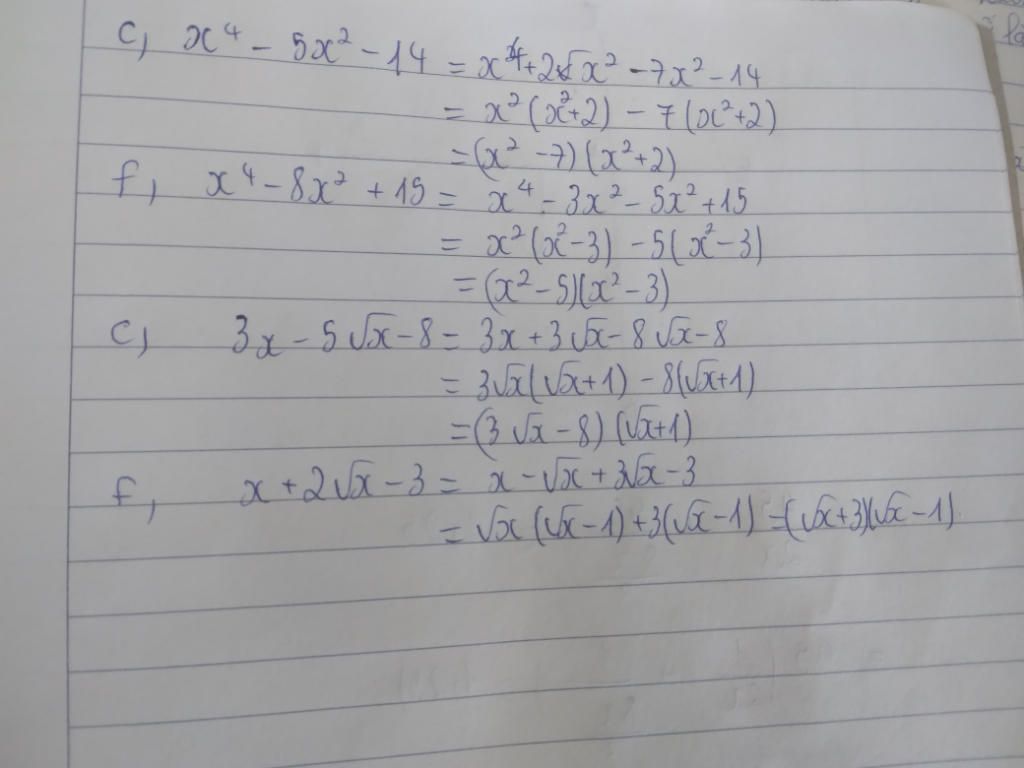 c, x⁴ - 5x² - 14 = x⁴ + 2x² - 7x² - 14
= x²(x²+2) - 7(x²+2)
= (x² - 7)(x²+2)
f, x⁴ - 8x² + 15 = x⁴ - 3x² - 5x² + 15
= x²(x²-3) - 5(x²-3)
= (x² - 5)(x² - 3)
c, 3x - 5√x - 8 = 3x + 3√x - 8√x - 8
= 3√x(√x+1) - 8(√x+1)
= (3√x - 8)(√x+1)
f, x + 2√x - 3 = x - √x + 3√x - 3
= √x(√x - 1) + 3(√x - 1) = (√x+3)(√x - 1)